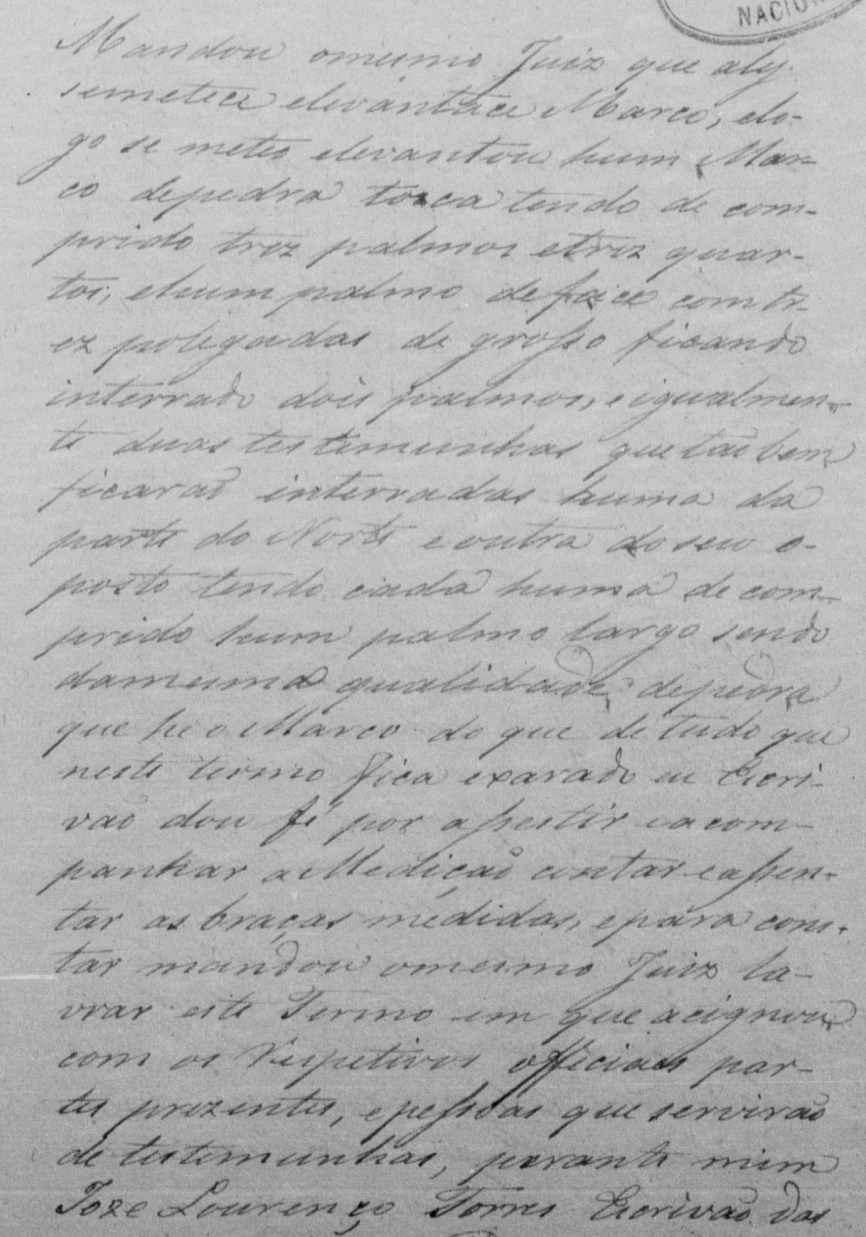 NACION
Mandou omesmo Juiz que aly
semetece elevantace Marco, elo-
go se meteo elevantou hum Mar-
co depedra tosca tendo de com-
prido trez palmos etrez quar-
tos, ehum palmo deface com tr-
ez polegadas de grosso ficando
interrado dois palmos, e igualmen-
te duas testemunhas que taõbem
ficaraõ interradas huma da
parte do Norte eoutra do seu o-
posto tendo cada huma de com-
prido hum palmo largo sendo
damesma qualidade depedra
que he o Marco do que de tudo que
neste termo fica exarado eu Escri-
vaõ dou fé por assestir eacom-
panhar aMediçaõ contar eassen-
tar as braças medidas, epara cons-
tar mandou omesmo Juiz la-
vrar este Termo em que acignou
com os Respetivos officiaes par-
tes prezentes, epessoas que serviraõ
de testemunhas, perante mim
Joze Lourenço Torres Escrivaõ das